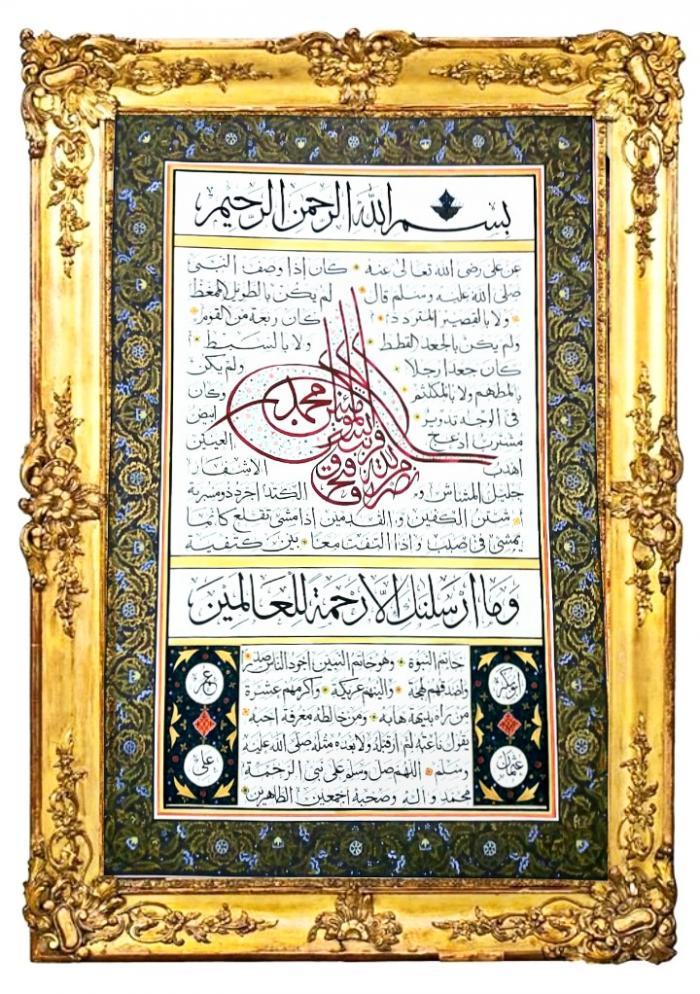 بسم الله الرحمن الرحيم
عن على رضى الله تعالى عنه كان اذا وصف النبى
صلى الله عليه وسلم قال لم يكن بالطويل الممغط
ولا بالقصير المتردد كان ربعة من القوم
ولم يكن بالجعد القطط ولا بالسبط
كان جعدا رجلا ولم يكن
بالمطهم ولا بالمكلثم وكان
فى الوجه تدوير ابيض
مشرب ادعج العينين
اهدب الاشفار
جليل المشاش و الكتد اجرد ذو مسربة
شثن الكفين و القدمين اذا مشى تقلع كانما
يمشى فى صبب واذا التفت معا بين كتفيه
محمد
نصر من الله وفتح قريب وبشر المؤمنين
وما ارسلنك الا رحمة للعالمين
خاتم النبوة وهو خاتم النبيين اجود الناس صدرا
واصدقهم لهجة والينهم عريكة واكرمهم عشرة
من راه بديهة هابه ومن خالطه معرفة احبه
يقول ناعته لم ار قبله ولا بعده مثله صلى الله عليه
وسلم اللهم صل وسلم على نبى الرحمة
محمد و اله وصحبه اجمعين الطاهرين
ابوبكر
عمر
عثمان
على